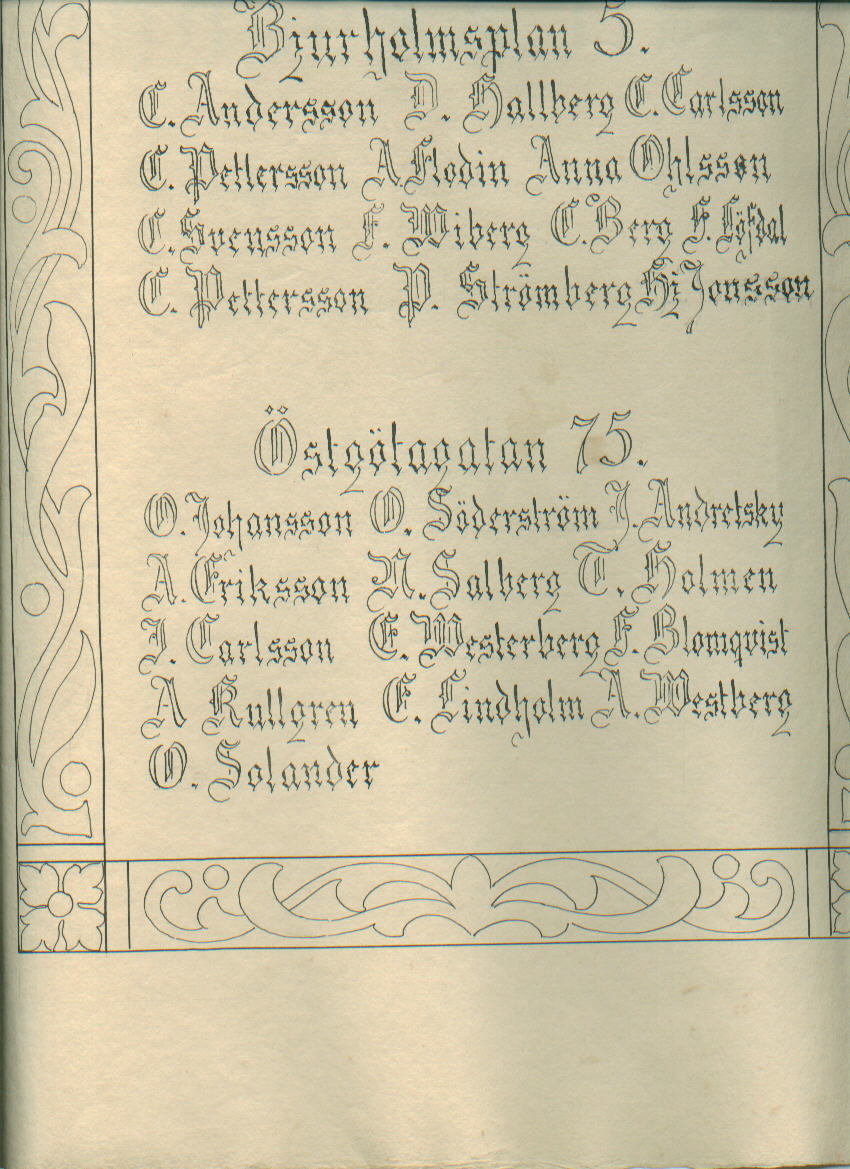 Bjurholmsplan 5.
C. Andersson D. Hallberg C. Carlsson
C. Pettersson A. Flodin Anna Ohlsson
C. Svensson F. Wiberg C. Berg F. Löfdal
C. Pettersson P. Strömberg Hj Jonsson
Östgötagatan 75.
O. Johansson O. Söderström J. Andretsky
A. Eriksson N. Salberg T. Holmen
J. Carlsson E. Westerberg F. Blomqvist
A Kullgren E. Lindholm A. Westberg
O. Solander